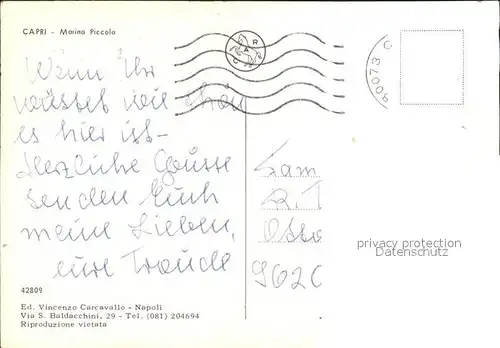 CAPRI - Marina Piccola
Wenn Ihr
wüsstet wie schön
es hier ist -
Herzliche Grüsse
senden Euch
meine Lieben,
eure Traude
42809
Ed. Vincenzo Carcavallo - Napoli
Via S. Baldacchini, 29 - Tel. (081) 204694
Riproduzione vietata
C A R
80073 C
Fam
R. T
Oste
962
privacy protection
Datenschutz